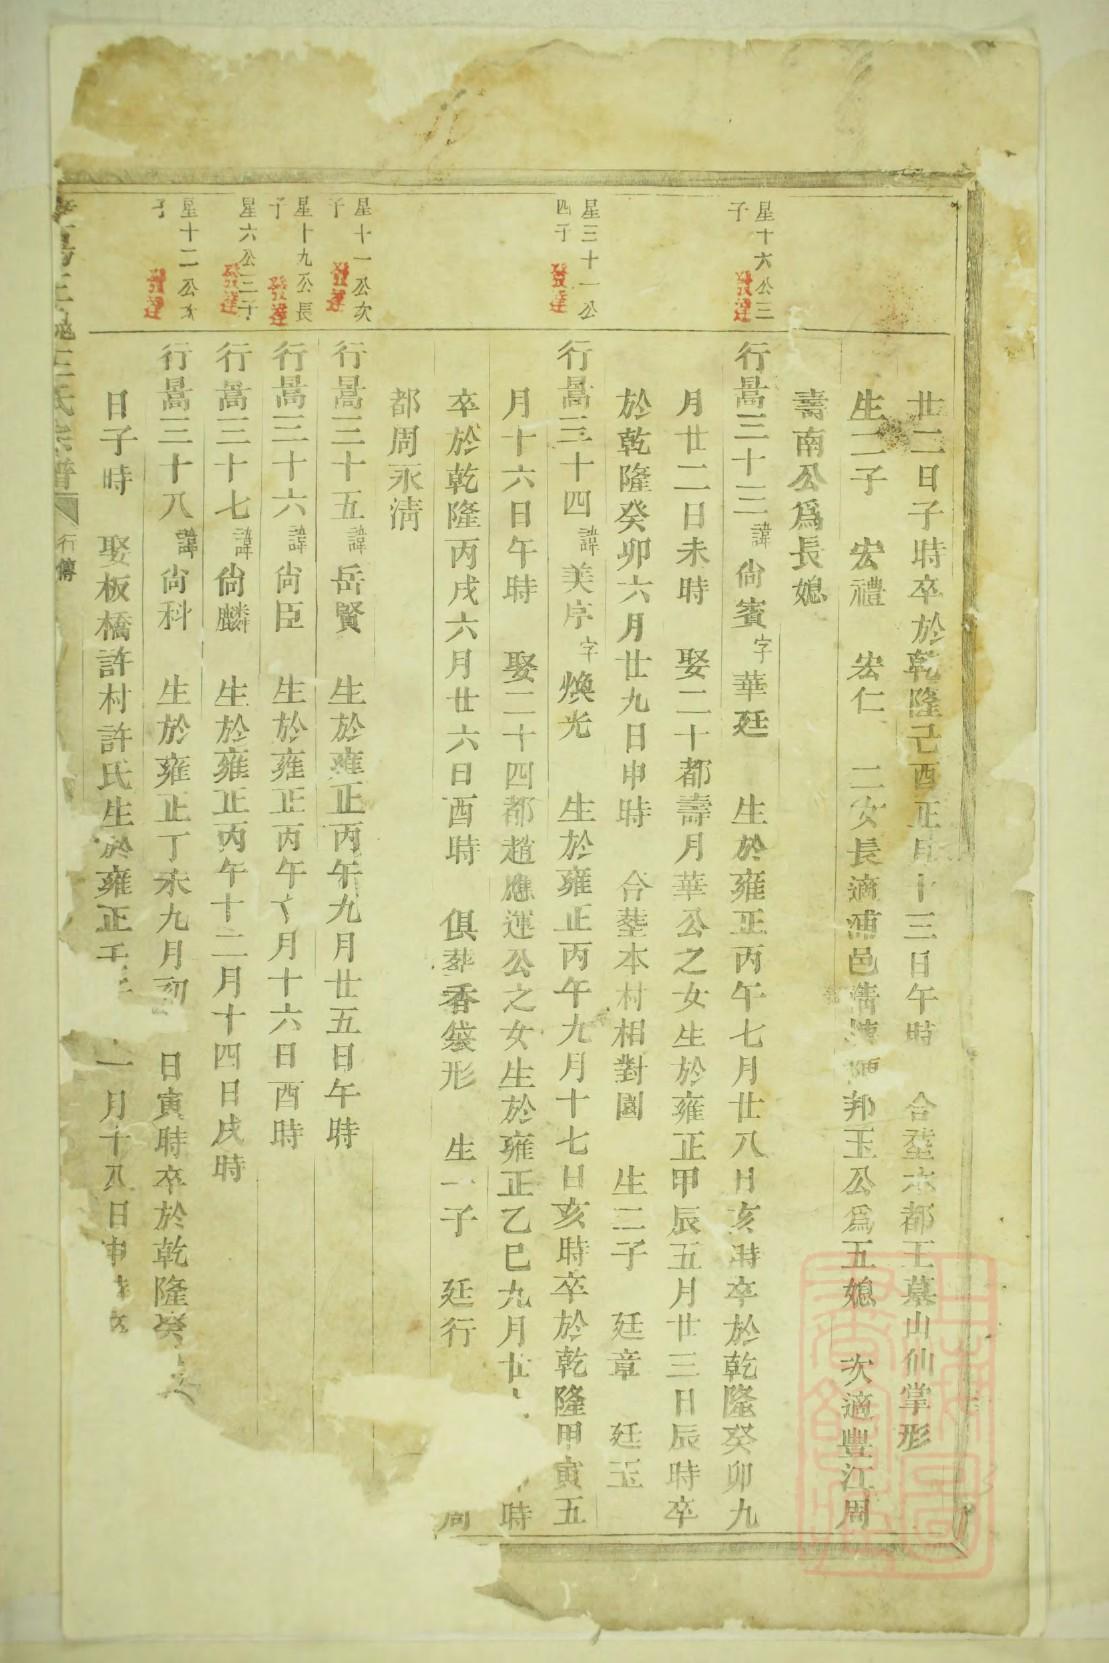 廿二日子時卒於乾隆己酉正月十三日午時 合塟本都王墓山仙掌形
生二子 宏禮 宏仁 二女長適浦邑 邦玉公爲五媳 次適豐江周
壽南公爲長媳
星十六公三子
發達
行暠三十三諱尙賓字華廷 生於雍正丙午七月廿八日亥時卒於乾隆癸卯九
月廿二日未時 娶二十都壽月華公之女生於雍正甲辰五月廿三日辰時卒
於乾隆癸卯六月廿九日申時 合塟本村相對園 生二子 廷章 廷玉
星三十一公四子
發達
行暠三十四諱美序字煥光 生於雍正丙午九月十七日亥時卒於乾隆甲寅五
月十六日午時 娶二十四都趙應運公之女生於雍正乙巳九月廿 時
卒於乾隆丙戌六月廿六日酉時 俱葬香袋形 生一子 廷行 周
都周永清
星十一公次子
發達
行暠三十五諱岳賢 生於雍正丙午九月廿五日午時
星十九公長子
發達
行暠三十六諱尙臣 生於雍正丙午 月十六日酉時
星六公三子
發達
行暠三十七諱尙麟 生於雍正丙午十二月十四日戌時
星十二公次子
發達
行暠三十八諱尙科 生於雍正丁未九月初 日寅時卒於乾隆癸
日子時 娶板橋許村許氏生於雍正壬子 一月十八日申時
王氏宗譜 行傳